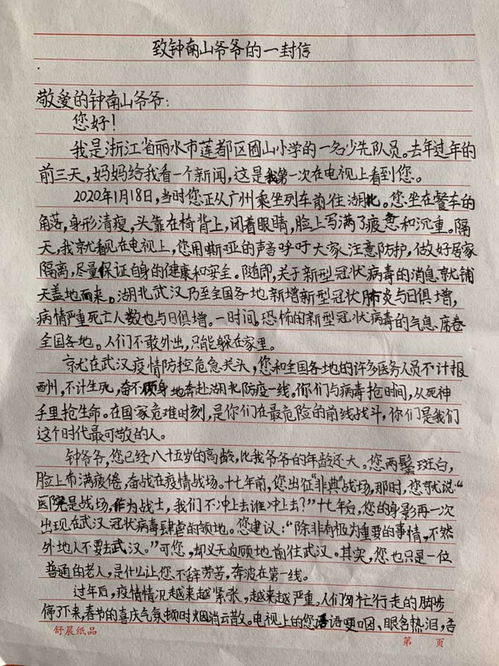 致钟南山爷爷的一封信
敬爱的钟南山爷爷:
您好!
我是浙江省丽水市莲都区囿山小学的一名少先队员。去年过年的
前三天,妈妈给我看一个新闻,这是我第一次在电视上看到您。
2020年1月18日,当时您正从广州乘坐列车前往湖北。您坐在餐车的
角落,身形清瘦,头靠在椅背上,闭着眼睛,脸上写满了疲惫和沉重。隔
天,我就看见在电视上,您用嘶哑的声音呼吁大家注意防护,做好居家
隔离,尽量保证自身的健康和安全。随即,关于新型冠状病毒的消息就铺
天盖地而来。湖北武汉乃至全国各地新增新型冠状肺炎与日俱增,
病情严重死亡人数也与日俱增。一时间,恐怖的新型冠状病毒的气息席卷
全国各地。人们不敢外出,只能躲在家里。
就在武汉疫情防控危急关头,您和全国各地的许多医务人员不计报
酬,不计生死,奋不顾身地奔赴湖北防疫一线。你们与病毒抢时间,从死神
手里抢生命。在国家危难时刻,是你们在最危险的前线战斗,你们是我们
这个时代最可敬的人。
钟爷爷,您已经八十五岁的高龄,比我爷爷的年龄还大。您两鬓斑白,
脸上布满疲倦,奋战在疫情战场。十七年前,您出征“非典”战场,那时,您就说“
医院是战场,作为战士,我们不冲上去谁冲上去?”十七年后,您的身影再一次
出现在武汉冠状病毒肆虐的领地。您建议:“除非有极为重要的事情,不然
外地人不要去武汉。”可您,却义无反顾地前往武汉。其实,您也只是一位
普通的老人,是什么让您不辞劳苦,奔波在第一线。
过年后,疫情情况越来越紧张,越来越严重。人们匆忙行走的脚步
停了下来,春节的喜庆气氛顿时烟消云散。电视上的您话语哽咽、眼含热泪,否
舒晨纸品
第 页